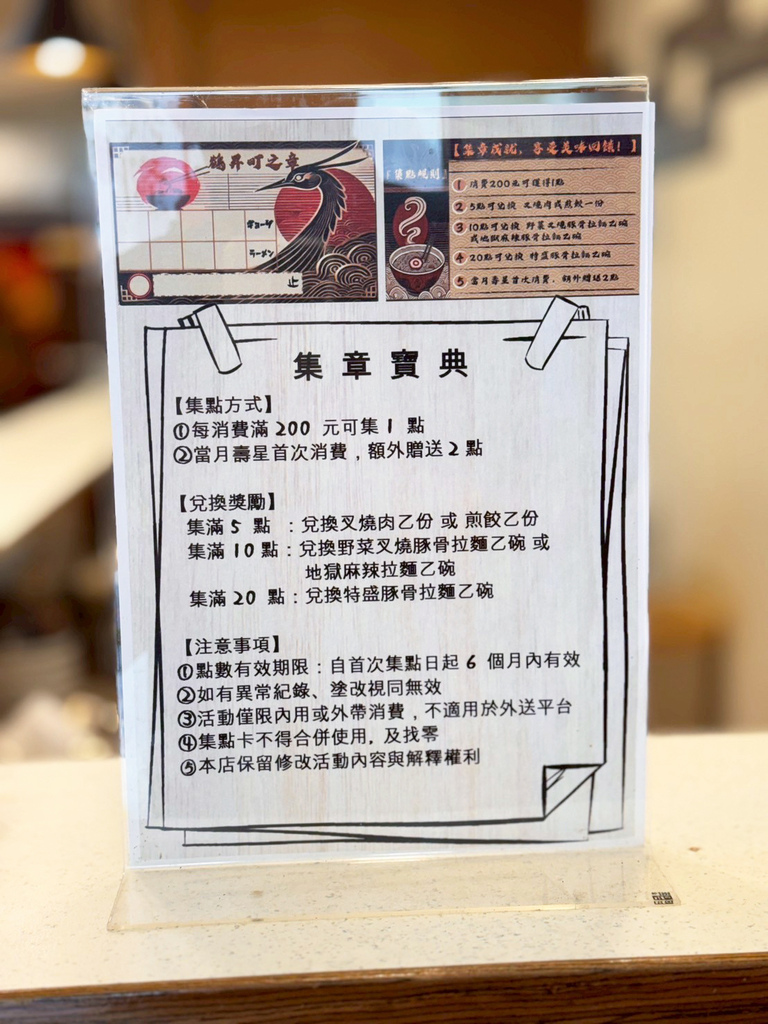 鶴昇町之章
【集章成就，享受美味回饋！】
「集點規則」
1 消費200元可獲得1點
2 5點可兌換 叉燒肉或煎餃一份
3 10點可兌換 野菜叉燒豚骨拉麵乙碗
或地獄麻辣豚骨拉麵乙碗
4 20點可兌換 特盛豚骨拉麵乙碗
5 當月壽星首次消費，額外贈送2點
集章寶典
【集點方式】
①每消費滿 200 元可集 1 點
②當月壽星首次消費，額外贈送 2 點
【兌換獎勵】
集滿 5 點 ：兌換叉燒肉乙份 或 煎餃乙份
集滿 10 點：兌換野菜叉燒豚骨拉麵乙碗 或
地獄麻辣拉麵乙碗
集滿 20 點：兌換特盛豚骨拉麵乙碗
【注意事項】
①點數有效期限：自首次集點日起 6 個月內有效
②如有異常紀錄、塗改視同無效
③活動僅限內用或外帶消費，不適用於外送平台
④集點卡不得合併使用, 及找零
⑤本店保留修改活動內容與解釋權利